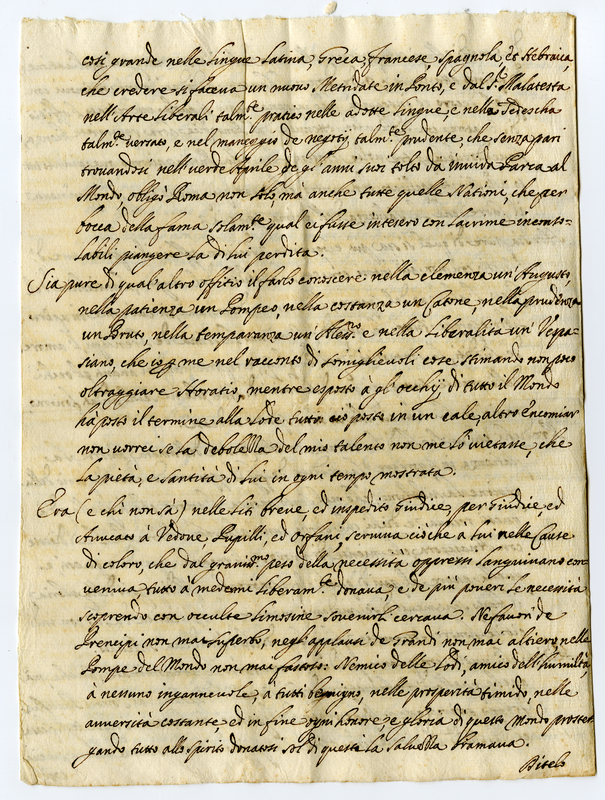 così grande nelle lingue Latina, Greca, francese, spagnola, et Hebraica,
che credere si faceva un nuovo Metridate in Ponto, e dal S.r Malatesta
nell'Arte Liberali talm.te pratico nelle adotte lingue, e nella Tedescha
talm.te versato, e nel maneggio de negotij talm.te prudente, che senza pari
trouandosi nell'uerde Aprile de gl'anni suoi tolto da inuida Parca al
Mondo, obligò Roma non solo, mà anche tutte quelle Nationi, che per
bocca della fama solam.te qual ei fusse intesero con lacrime inconso=
labili piangere la di lui perdita.
Sia pure di qual'altro offitio il farlo conoscere nella clemenza un'Augusto,
nella patienza un Pompeo, nella costanza un Catone, nella prudenza
un Bruto, nella temparanza un'Aless.ro e nella Liberalità un'Vespa=
siano, che io me nel racconto di somiglieuoli cose stimando non poco
oltraggiare Horatio, mentre esposto à gl'occhij di tutto il Mondo
hà posto il termine alla lode tutto ciò posto in un cale, altro encomiar
non uorrei se la debolezza del mio talento non me lo uietasse, che
la pietà, e santità di lui in ogni tempo mostrata.
Era (e chi non sà) nelle liti breue, ed inspedito Giudice, per Giudice, ed
Auuocato à Vedoue Pupilli, ed orfani, seruiua ciò che à lui nelle Cause
di coloro, che dal grauiss.mo peso della necessità oppressi languiuano con=
ueniua tutto à medemi liberam.te donaua, e de più poueri le necessità
scoprendo con occulte limosine souenirli cercaua. Ne fauori de
Prencipi non mai superbo, negl'applausi de Grandi non mai altiero, nelle
Pompe del Mondo non mai fastoso: Nemico delle lodi, amico dell'humiltà,
à nessuno ingannevole, a tutti benigno, nelle prosperità timido, nelle
auuersità costante, ed in fine ogni honore e gloria di questo Mondo proster=
gando tutto allo spirito donatosi sol di questo la saluezza bramaua.